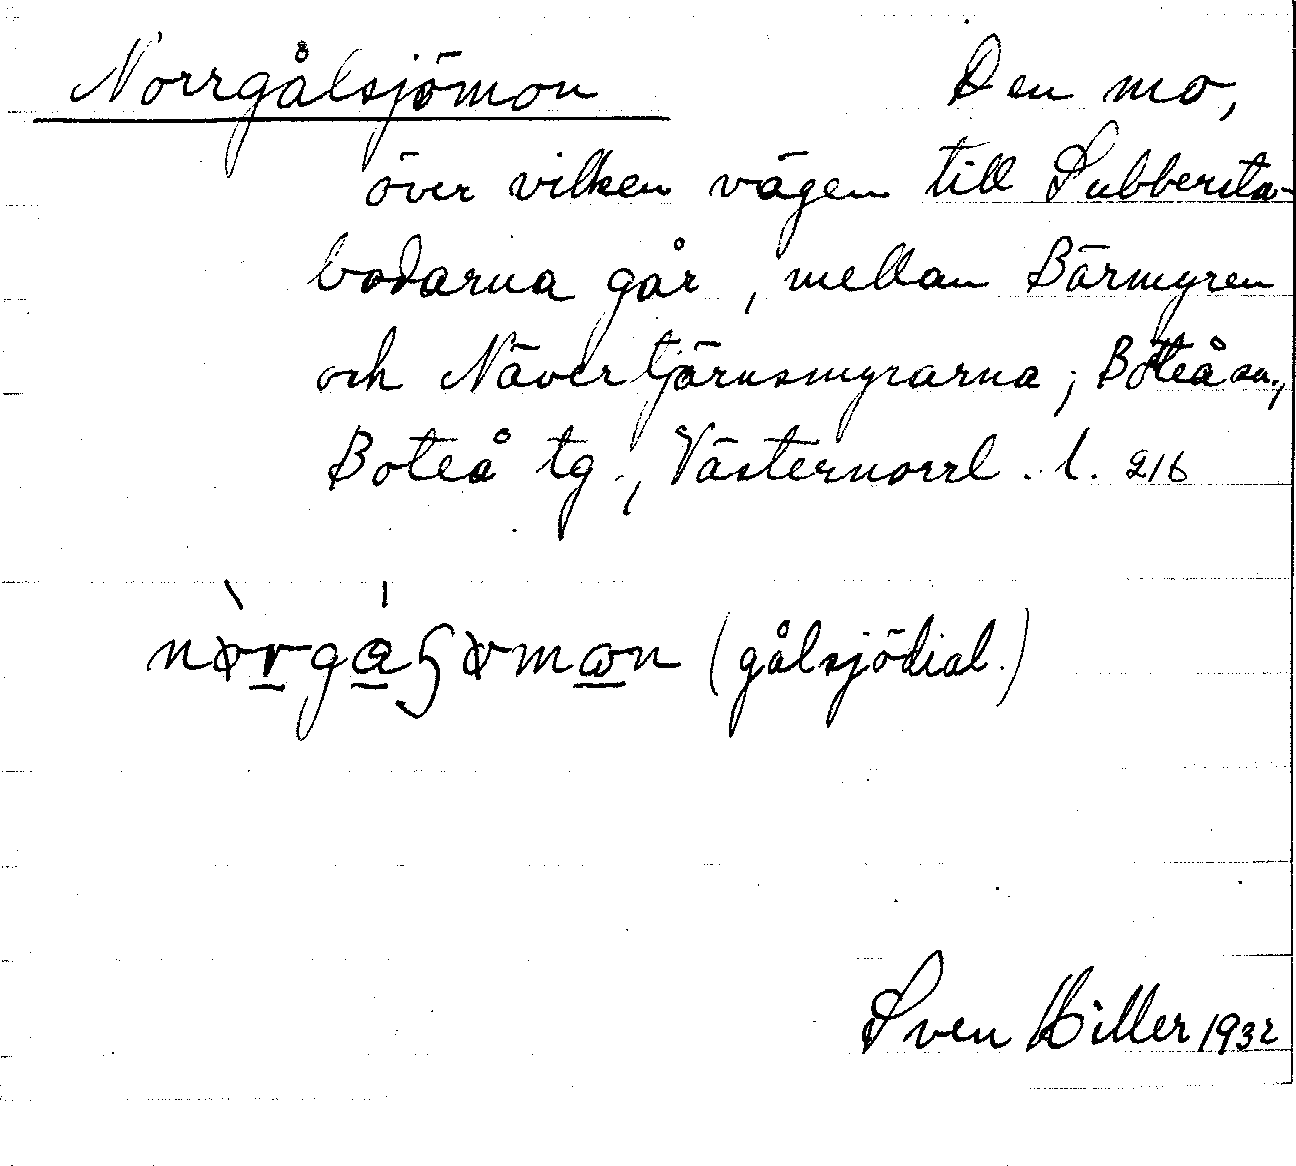 Norrgålsjömon Den mo,
över vilken vägen till Subbersta-
bodarna går, mellan Bärmyren
och Nävertjärnsmyrarna; Boteå sn.,
Boteå tg., Västernorrl. l. 216
(gålsjödial.)
Sven Hiller 1932